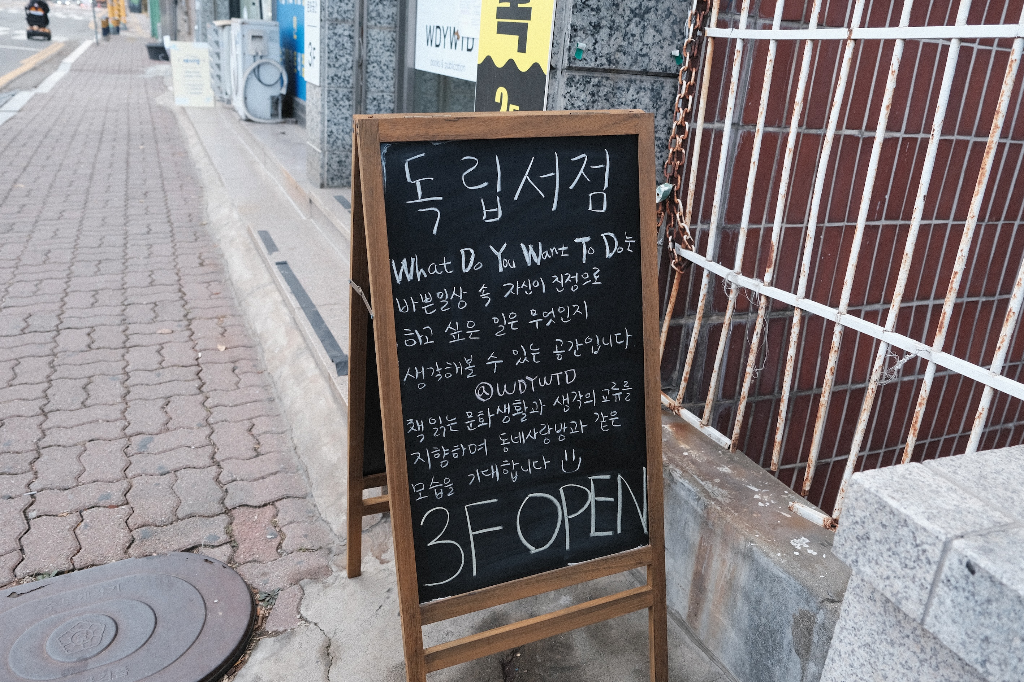 WDYWTD
3F
독립서점
What Do You Want To Do는
바쁜일상 속 자신이 진정으로
하고 싶은 일은 무엇인지
생각해볼 수 있는 공간입니다
@WDYWTD
책 읽는 문화생활과 생각의 교류를
지향하며 동네사랑방과 같은
모습을 기대합니다
3F OPEN